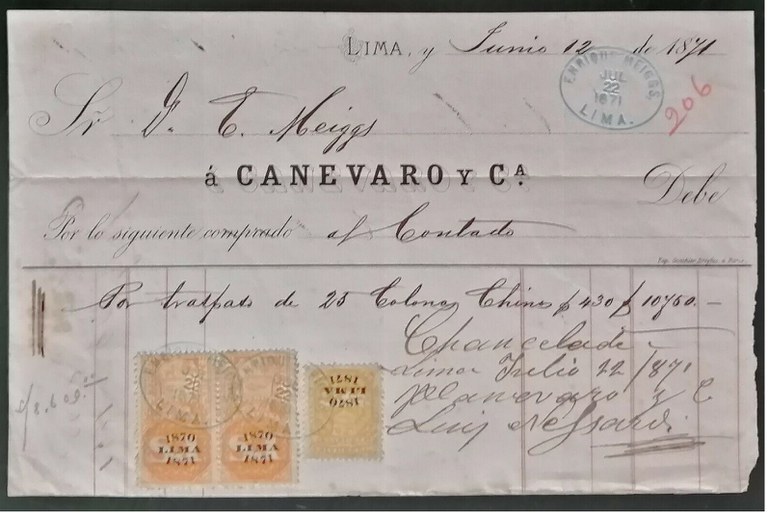 LIMA, y Junio 12 de 1871
ENRIQUE MEIGGS,
JUL
22
1871
LIMA.
206
Sr. D. E. Meiggs
á CANEVARO Y CA.
Debe
Por lo siguiente comprado al Contado
Por traspaso de 25 Colonos Chinos $430 $10750.—
Chancelada
Lima Julio 22/871
p Canevaro y C
Luis
1870
LIMA
1871
1870
LIMA
1871
1870
LIMA
1871